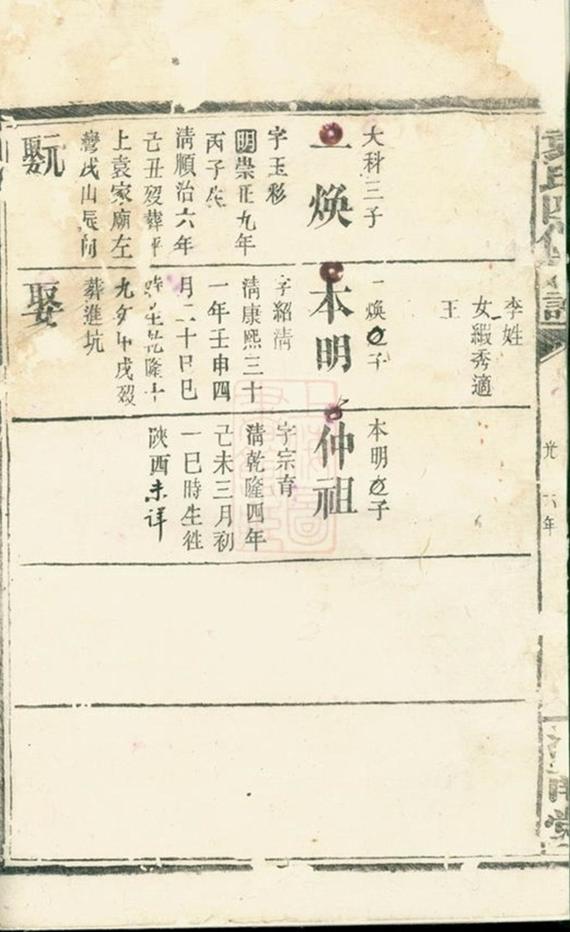 李姓
女緞秀適
王
大科三子
一煥
字玉彩
明崇正九年
丙子生
清順治六年
己丑歿葬平
上袁家廟左
灣戌山辰向
元
娶
一煥之子
本明
字紹清
清康熙三十
一年壬申四
月二十日巳
時生乾隆十
九年甲戌歿
葬進坑
娶
本明之子
仲祖
字宗育
清乾隆四年
己未三月初
一巳時生徃
陝西未详
光 六年